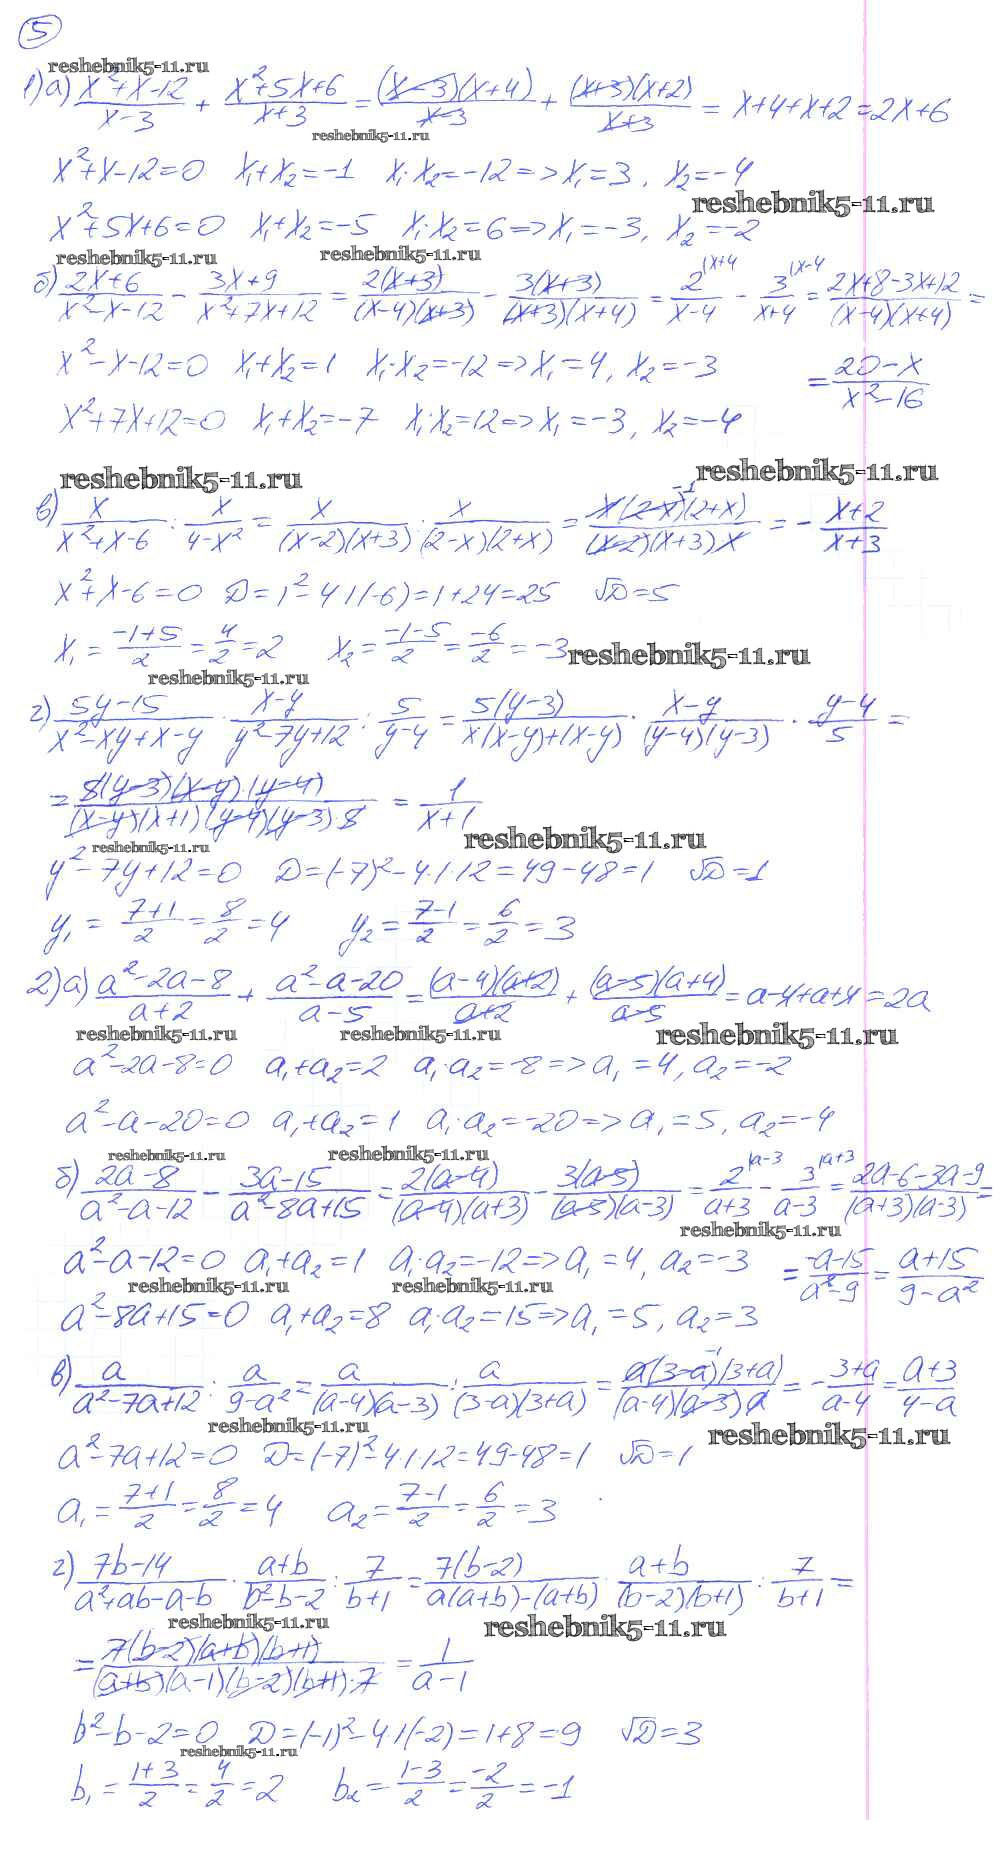 5
reshebnik5-11.ru
1) а) (x²+x-12)/(x-3) + (x²+5x+6)/(x+3) = ((x-3)(x+4))/(x-3) + ((x+3)(x+2))/(x+3) = x+4+x+2=2x+6
reshebnik5-11.ru
x²+x-12=0 x₁+x₂=-1 x₁·x₂=-12=>x₁=3, x₂=-4
reshebnik5-11.ru
x²+5x+6=0 x₁+x₂=-5 x₁·x₂=6=>x₁=-3, x₂=-2
reshebnik5-11.ru reshebnik5-11.ru
б) (2x+6)/(x²-x-12) - (3x+9)/(x²+7x+12) = (2(x+3))/((x-4)(x+3)) - (3(x+3))/((x+3)(x+4)) = 2^(|x+4)/(x-4) - 3^(|x-4)/(x+4) = (2x+8-3x+12)/((x-4)(x+4)) =
x²-x-12=0 x₁+x₂=1 x₁·x₂=-12=>x₁=4, x₂=-3 = (20-x)/(x²-16)
x²+7x+12=0 x₁+x₂=-7 x₁·x₂=12=>x₁=-3, x₂=-4
reshebnik5-11.ru reshebnik5-11.ru
в) x/(x²+x-6) : x/(4-x²) = x/((x-2)(x+3)) : x/((2-x)(2+x)) = (x(2-x)^(-1)(2+x))/((x-2)(x+3)x) = -(x+2)/(x+3)
x²+x-6=0 D=1²-4·1·(-6)=1+24=25 √D=5
x₁ = (-1+5)/2 = 4/2 = 2 x₂ = (-1-5)/2 = -6/2 = -3
reshebnik5-11.ru
reshebnik5-11.ru
г) (5y-15)/(x²-xy+x-y) · (x-y)/(y²-7y+12) : 5/(y-4) = (5(y-3))/(x(x-y)+(x-y)) · (x-y)/((y-4)(y-3)) · (y-4)/5 =
= (5(y-3)(x-y)·(y-4))/((x-y)(x+1)(y-4)(y-3)5) = 1/(x+1)
reshebnik5-11.ru
reshebnik5-11.ru
y²-7y+12=0 D=(-7)²-4·1·12=49-48=1 √D=1
y₁ = (7+1)/2 = 8/2 = 4 y₂ = (7-1)/2 = 6/2 = 3
2) а) (a²-2a-8)/(a+2) + (a²-a-20)/(a-5) = ((a-4)(a+2))/(a+2) + ((a-5)(a+4))/(a-5) = a-4+a+4=2a
reshebnik5-11.ru reshebnik5-11.ru reshebnik5-11.ru
a²-2a-8=0 a₁+a₂=2 a₁·a₂=-8=>a₁=4, a₂=-2
a²-a-20=0 a₁+a₂=1 a₁·a₂=-20=>a₁=5, a₂=-4
reshebnik5-11.ru reshebnik5-11.ru
б) (2a-8)/(a²-a-12) - (3a-15)/(a²-8a+15) = (2(a-4))/((a-4)(a+3)) - (3(a-5))/((a-5)(a-3)) = 2^(|a-3)/(a+3) - 3^(|a+3)/(a-3) = (2a-6-3a-9)/((a+3)(a-3)) =
reshebnik5-11.ru
a²-a-12=0 a₁+a₂=1 a₁·a₂=-12=>a₁=4, a₂=-3 = (-a-15)/(a²-9) = (a+15)/(9-a²)
reshebnik5-11.ru reshebnik5-11.ru
a²-8a+15=0 a₁+a₂=8 a₁·a₂=15=>a₁=5, a₂=3
в) a/(a²-7a+12) : a/(9-a²) = a/((a-4)(a-3)) : a/((3-a)(3+a)) = (a(3-a)^(-1)(3+a))/((a-4)(a-3)a) = -(3+a)/(a-4) = (a+3)/(4-a)
reshebnik5-11.ru reshebnik5-11.ru
a²-7a+12=0 D=(-7)²-4·1·12=49-48=1 √D=1
a₁ = (7+1)/2 = 8/2 = 4 a₂ = (7-1)/2 = 6/2 = 3
г) (7b-14)/(a²+ab-a-b) · (a+b)/(b²-b-2) : 7/(b+1) = (7(b-2))/(a(a+b)-(a+b)) · (a+b)/((b-2)(b+1)) : 7/(b+1) =
reshebnik5-11.ru reshebnik5-11.ru
= (7(b-2)(a+b)(b+1))/((a+b)(a-1)(b-2)(b+1)·7) = 1/(a-1)
b²-b-2=0 D=(-1)²-4·1·(-2)=1+8=9 √D=3
reshebnik5-11.ru
b₁ = (1+3)/2 = 4/2 = 2 b₂ = (1-3)/2 = -2/2 = -1